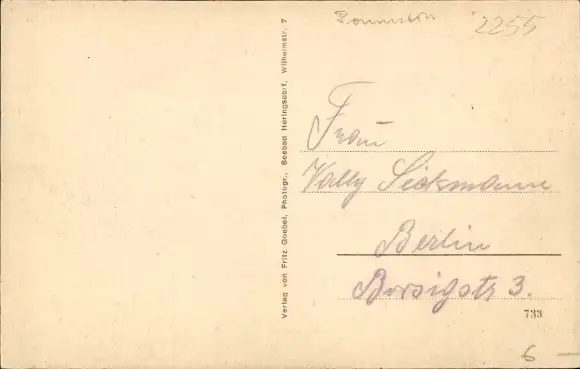 Pommern
2255
Verlag von Fritz Goebel, Photogr., Seebad Heringsdorf, Wilhelmstr. 7
Frau
Wally Sickmann
Berlin
Borsigstr 3.
733
6